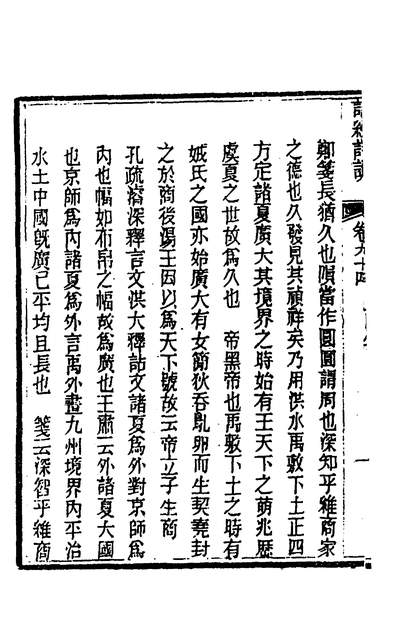 詩經詳說
卷九十四
鄭箋長猶久也隕當作圓圓謂周也深知乎維商家
之德也久發見其禎祥矣乃用洪水禹敷下土正四
方定諸夏廣大其境界之時始有王天下之萌兆歷
虞夏之世故為久也　帝黑帝也禹敷下土之時有
娀氏之國亦始廣大有女簡狄吞鳦卵而生契堯封
之於商後湯王因以為天下號故云帝立子生商
孔疏濬深釋言文洪大釋詁文諸夏為外對京師為
內也幅如布帛之幅故為廣也王肅云外諸夏大國
也京師為內諸夏為外言禹外畫九州境界內平治
水土中國既廣已平均且長也　箋云深智乎維商